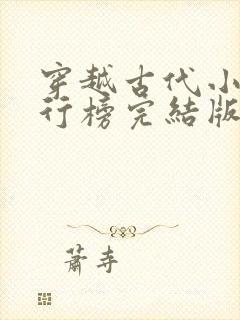 穿越古代小
行榜完結版
蕭寺